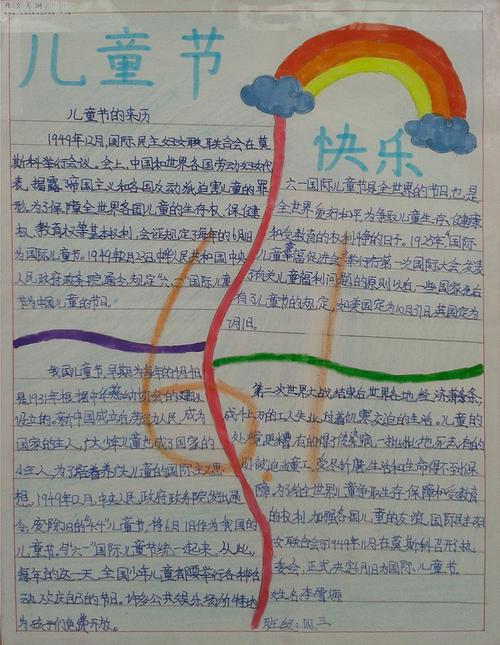 作文大网
儿童节
快乐
儿童节的来历
1949年12月,国际民主妇女联合会在莫
斯科举行会议。会上,中国和世界各国劳动妇女代
表,揭露帝国主义和各国反动派迫害儿童的罪
行,为了保障全世界各国儿童的生存权、保健
权、教育权等基本权利,会议规定每年的6月1日
为国际儿童节。1949年12月23日,中华人民共和国中央
人民政府政务院通令规定"六一"国际儿童
节为中国儿童的节日。
六一国际儿童节是全世界的节日也是
全世界爱好和平为争取儿童生存、健康
和受教育的权利斗争的日子。1925年"国际
儿童幸福促进会"举行的第一次国际大会,发表
了有关儿童福利问题的原则以后一些国家先后
有了儿童节的规定,如美国定为10月31日,英国定为
7月1日。
我国儿童节,早期为每年的4月4日
是1931年根据中华慈幼协会的建议
设立的。新中国成立后劳动人民,成为
国家的主人,广大少年儿童也成了国家的
小主人,为了培养广大儿童的国际主义思
想,1949年12月,中央人民政府政务院发出通
令,废除旧的"四四"儿童节,将6月1日作为我国的
儿童节,与"六一"国际儿童节统一起来,从此,
每年的这一天,全国少年儿童都要举行各种活
动,欢庆自己的节日。许多公共娱乐场所特地
为孩子们免费开放。
第二次世界大战结束后世界各地,经济萧条,
成千上万的工人失业,过着饥寒交迫的生活。儿童的
处境更糟,有的得了传染病,一批批地死去,有的
则被迫当童工,受尽折磨,生活和生命得不到保
障,为悼念世界儿童争取生存、保障和受教育
的权利,加强各国儿童的友谊,国际民主妇
女联合会于1949年11月在莫斯科召开执
委会,正式决定6月1日为国际儿童节。
姓名:李
班级:四、三